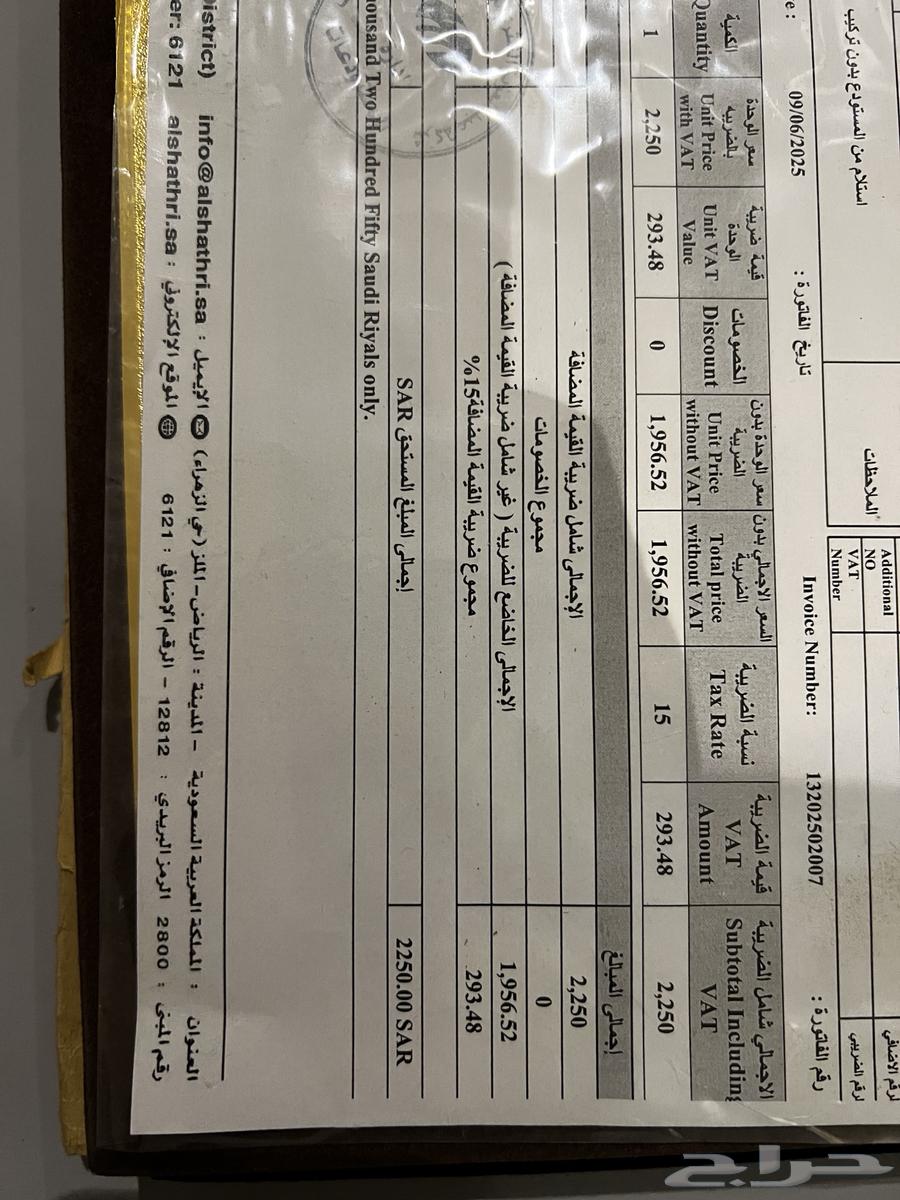 استلام من المستودع بدون تركيب
الملاحظات
Additional NO
VAT Number
الرقم الاضافي
الرقم الضريبي
09/06/2025 تاريخ الفاتورة :
Invoice Number: 13202502007 رقم الفاتورة :
الكمية Quantity
سعر الوحدة بالضريبه Unit Price with VAT
قيمة ضريبة الوحدة Unit VAT Value
الخصومات Discount
سعر الوحدة بدون الضريبة Unit Price without VAT
السعر الاجمالي بدون الضريبة Total price without VAT
نسبة الضريبة Tax Rate
قيمة الضريبة VAT Amount
الاجمالي شامل الضريبة Subtotal Including VAT
1 2,250 293.48 0 1,956.52 1,956.52 15 293.48 2,250
إجمالي المبالغ
الإجمالي شامل ضريبة القيمة المضافة 2,250
مجموع الخصومات 0
الإجمالي الخاضع للضريبة ( غير شامل ضريبة القيمة المضافة ) 1,956.52
مجموع ضريبة القيمة المضافة 15% 293.48
إجمالي المبلغ المستحق SAR 2250.00 SAR
Two Hundred Fifty Saudi Riyals only.
العنوان : المملكة العربية السعودية - المدينة : الرياض - الملز (حي الزهراء) الإيميل : info@alshathri.sa
رقم المبنى : 2800 الرمز البريدي : 12812 - الرقم الإضافي : 6121 الموقع الإلكتروني : alshathri.sa 6121
حراج